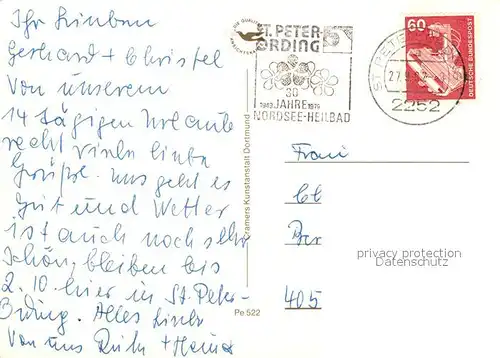 Ihr Lieben
Gerhard + Christel
Von unserem
14 tägigen Urlaub
recht viele liebe
Grüße. uns geht es
Gut und Wetter
ist auch noch sehr
schön, bleiben bis
2.10. hier in St. Peter-
Ording. Alles Liebe
Von uns Ruth + Heinz
Cramers Kunstanstalt Dortmund
Pe 522
ST. PETER-
ORDING
30
JAHRE
NORDSEE-HEILBAD
ST. PETER
2252
60
DEUTSCHE BUNDESPOST
Frau
405
privacy protection
Datenschutz